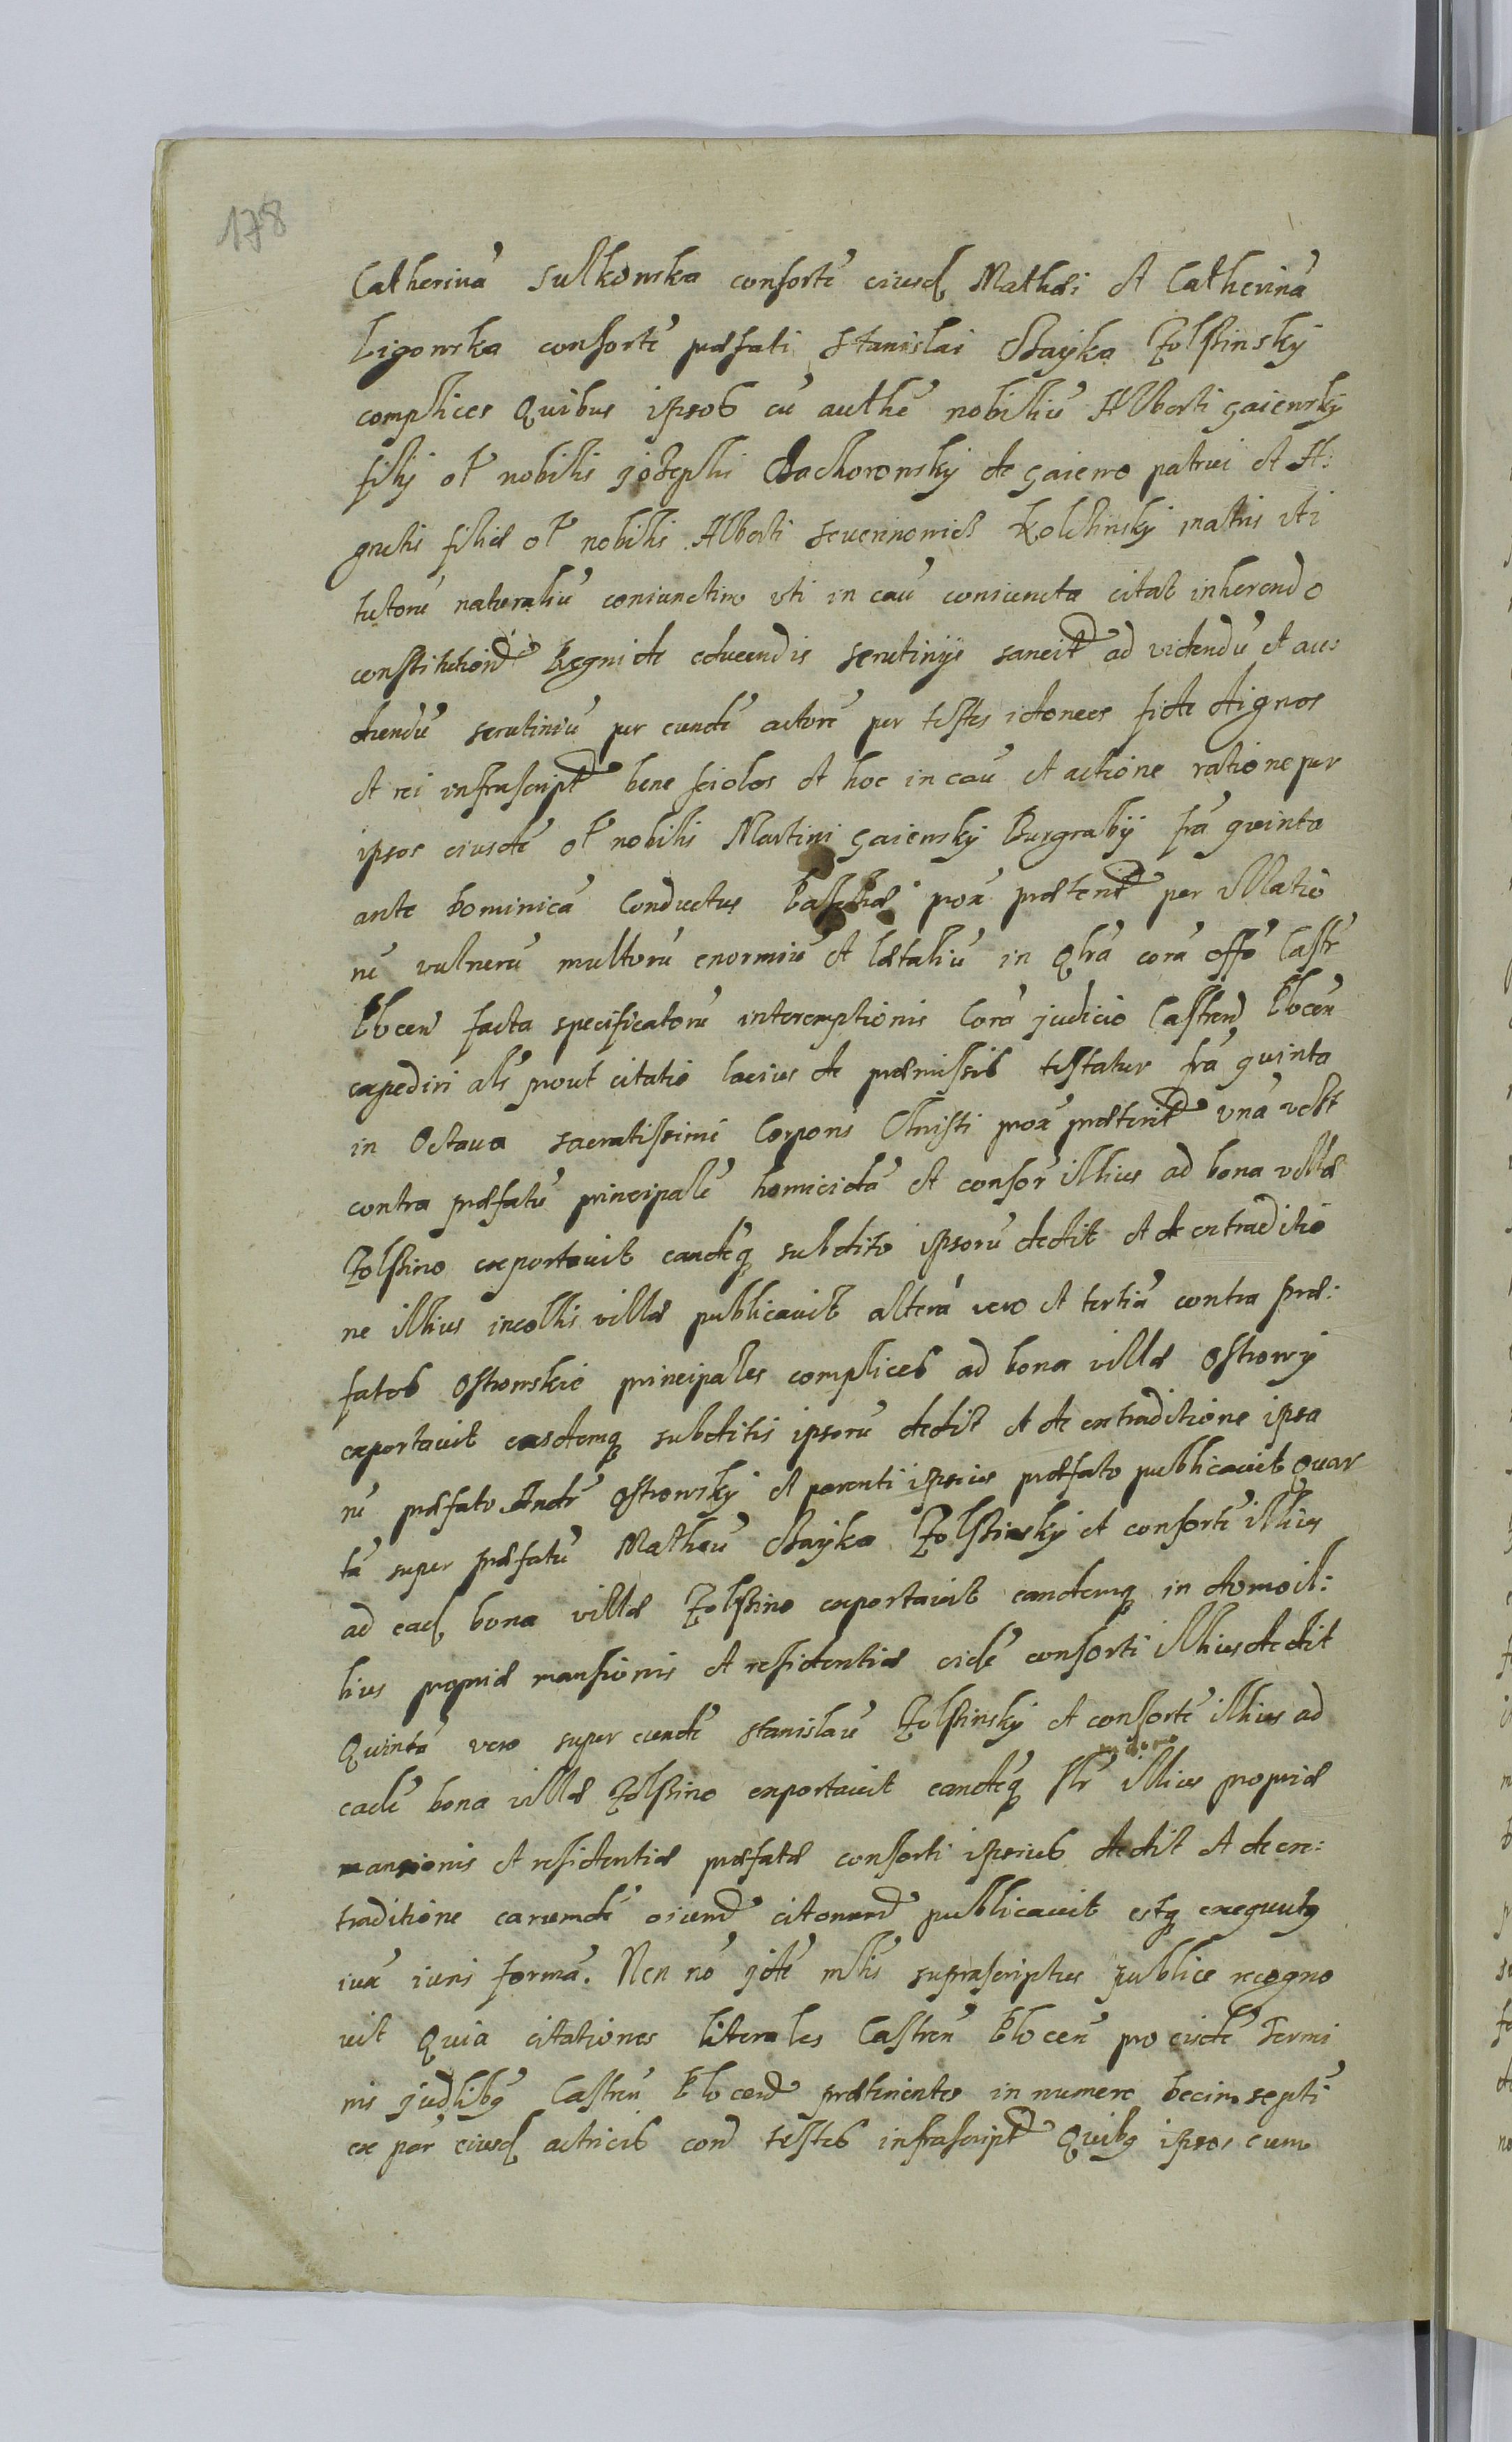 178
Catherinā Sulkowska consortē eiusd Mathæi et Catherinā
Ligowska consortē præfati Stanislai Chayka Zolssinsky
complices Quibus ipsos cū authē nobiliū Alberti Gaiewsky
filij ol nobilis Josephi Chachorowsky de Gaiewo patrui et A:
gnetis filiæ ol nobilis Alberti Seuerinowicz Kolchinsky matris uti
tutorū naturaliū coniunctim uti in cāu coniuncta citat inherendo
constitutiond Regni de educendis scrutinijs sancit ad videndū et au:
diendū scrutiniū per eundē actorē per testes idoneos fide dignos
et rei infrascript bene sciolos et hoc in cāu et actione ratione per
ipsos eiusdē ol nobilis Martini Gaiewsky Burgrabij frā quinta
ante Dominicā Conductus Paschæ prox præterit per illatio
nē vulnerū multorū enormiū et lætaliū in Qlrā corā offo Castr
Plocen facta specificatorū interemptionis Corā judicio Castren Plocen
expediri als prout citatio lacius de præmissis testatur frā quinta
in Octaua sacratissimi Corporis Christi prox præterit unā
contra præfatū principalē homicidā et consor illius ad bona villæ
Zolssino exportauit eandēq subdito ipsorū dedit et de extraditio
ne illius incolis villæ publicauit alterā vero et tertiā contra præ:
fatos Ostrowskie principales complices ad bona villæ Ostrowy
exportauit easdemq subditis ipsorū dedit et de extraditione ipsa
rū præfato Andr Ostrowsky et parenti ipsius præfato publicauit Quar
tā super præfatū Mathæū Chayka Zolssinsky et consortē illius
ad ead bona villæ Zolssino exportauit eandemq in domo il:
lius propriæ mansionis et residentiæ eidē consorti illius dedit
Quintā vero super eundē Stanislaū Zolssinsky et consortē illius ad
eadē bona villæ Zolssino exportauit eandēq in domo illius propriæ
mansionis et residentiæ præfatæ consorti ipsius dedit et de ex:
traditione earumdē oiumd citonumd publicauit estq exequutq
iuxa iuris formā. Nen nō jdē mlis suprascriptus publice recogno
uit Quia citationes literales Castren Plocen pro eisdē Termi
nis judlibq Castren Plocend prætinentes in numero Decimoseptī
ex par eiusd actricis cond testes infrascript Quibq ipsos cum